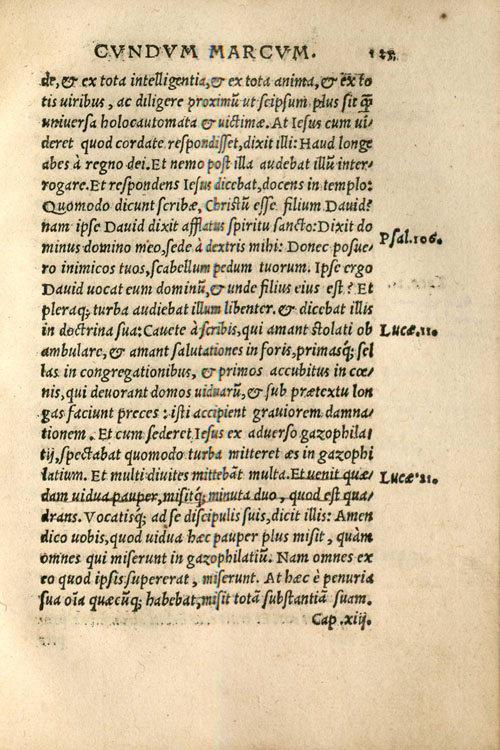 CVNDVM MARCVM. 125
de, & ex tota intelligentia, & ex tota anima, & ex to
tis viribus, ac diligere proximũ ut seipsum plus sit q̃
universa holocautomata & uictimæ. At Iesus cum vi/
deret quod cordate respondisset, dixit illi: Haud longe
abes à regno dei. Et nemo post illa audebat illũ inter/
rogare. Et respondens Iesus dicebat, docens in templo:
Quomodo dicunt scribæ, Christũ esse filium David?
nam ipse David dixit afflatus spiritu sancto: Dixit do
minus domino meo, sede à dextris mihi: Donec posue/
Psal. 106.
ro inimicos tuos, scabellum pedum tuorum. Ipse ergo
David uocat eum dominũ, & unde filius eius est? Et
pleraq; turba audiebat illum libenter. & dicebat illis
in doctrina sua: Cauete à scribis, qui amant stolati ob
Lucæ. 11.
ambulare, & amant salutationes in foris, primasq; sel
las in congregationibus, & primos accubitus in cœ/
nis, qui devorant domos uiduarũ, & sub prætextu lon
gas faciunt preces : isti accipient graviorem damna/
tionem. Et cum sederet Iesus ex adverso gazophila/
tij, spectabat quomodo turba mitteret æs in gazophi
latium. Et multi divites mittebãt multa. Et uenit quæ/
Lucæ. 21.
dam uidua pauper, misitq; minuta duo, quod est qua/
drans. Vocatisq; ad se discipulis suis, dicit illis: Amen
dico uobis, quod uidua hæc pauper plus misit, quàm
omnes qui miserunt in gazophilatiũ. Nam omnes ex
eo quod ipsis supererat, miserunt. At hæc è penuria
sua oĩa quæcũq; habebat, misit totã substantiã suam.
Cap. xiij.